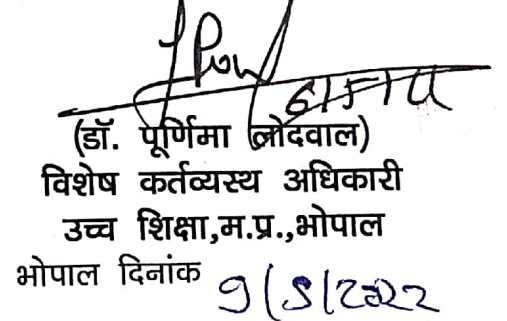 (डॉ. पूर्णिमा लोदवाल)
विशेष कर्तव्यस्थ अधिकारी
उच्च शिक्षा,म.प्र.,भोपाल
भोपाल दिनांक 9/5/2022